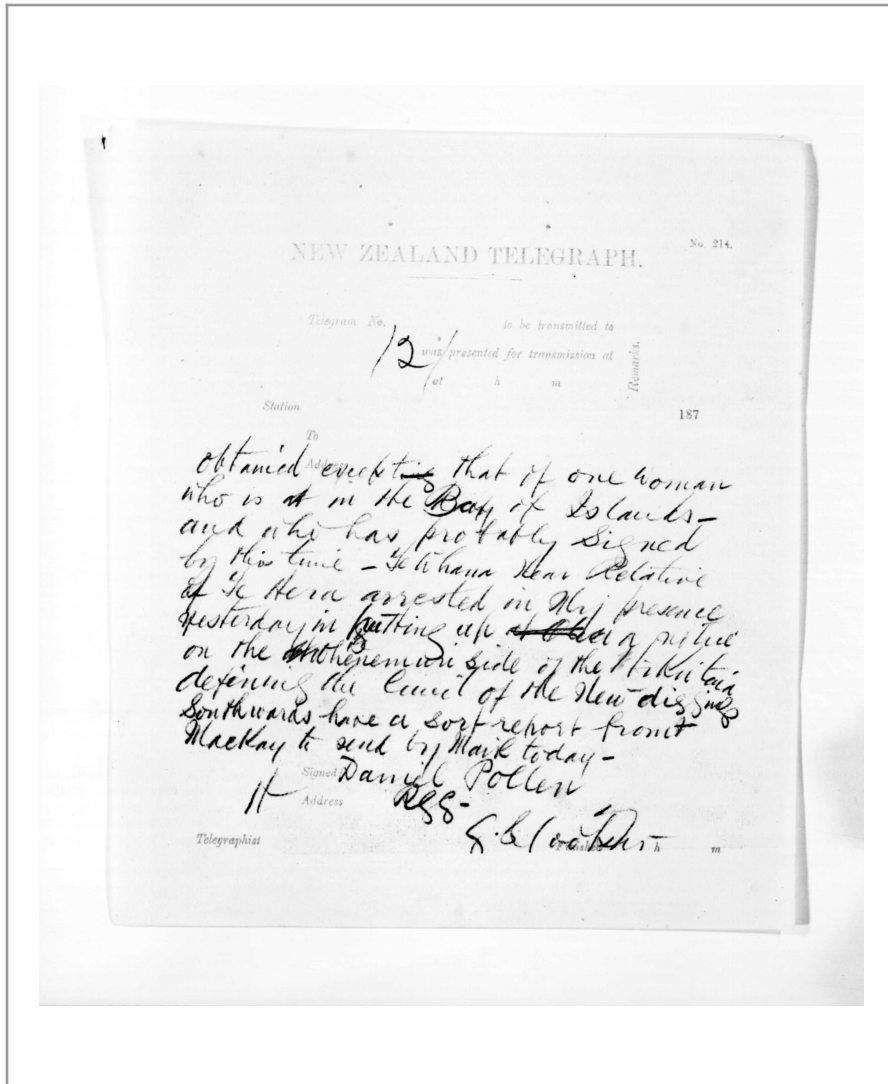 No. 214.
NEW ZEALAND TELEGRAPH.
Telegram No. to be transmitted to
/2/ was presented for transmission at
at h m
Remarks.
Station 187
To
Address
obtained excepting that of one woman
who is at in the Bay of Islands—
and who has probably Signed
by this time — Near Relative
of Te Hera arrested in My presence
yesterday in putting up a notice
on the Ohinemuri Side of the Hikutaia
defining the limit of the New diggings
Southwards have a sort report from
MacKay to send by Mail today—
Signed Daniel Pollen
Address
Telegraphist Finished h m